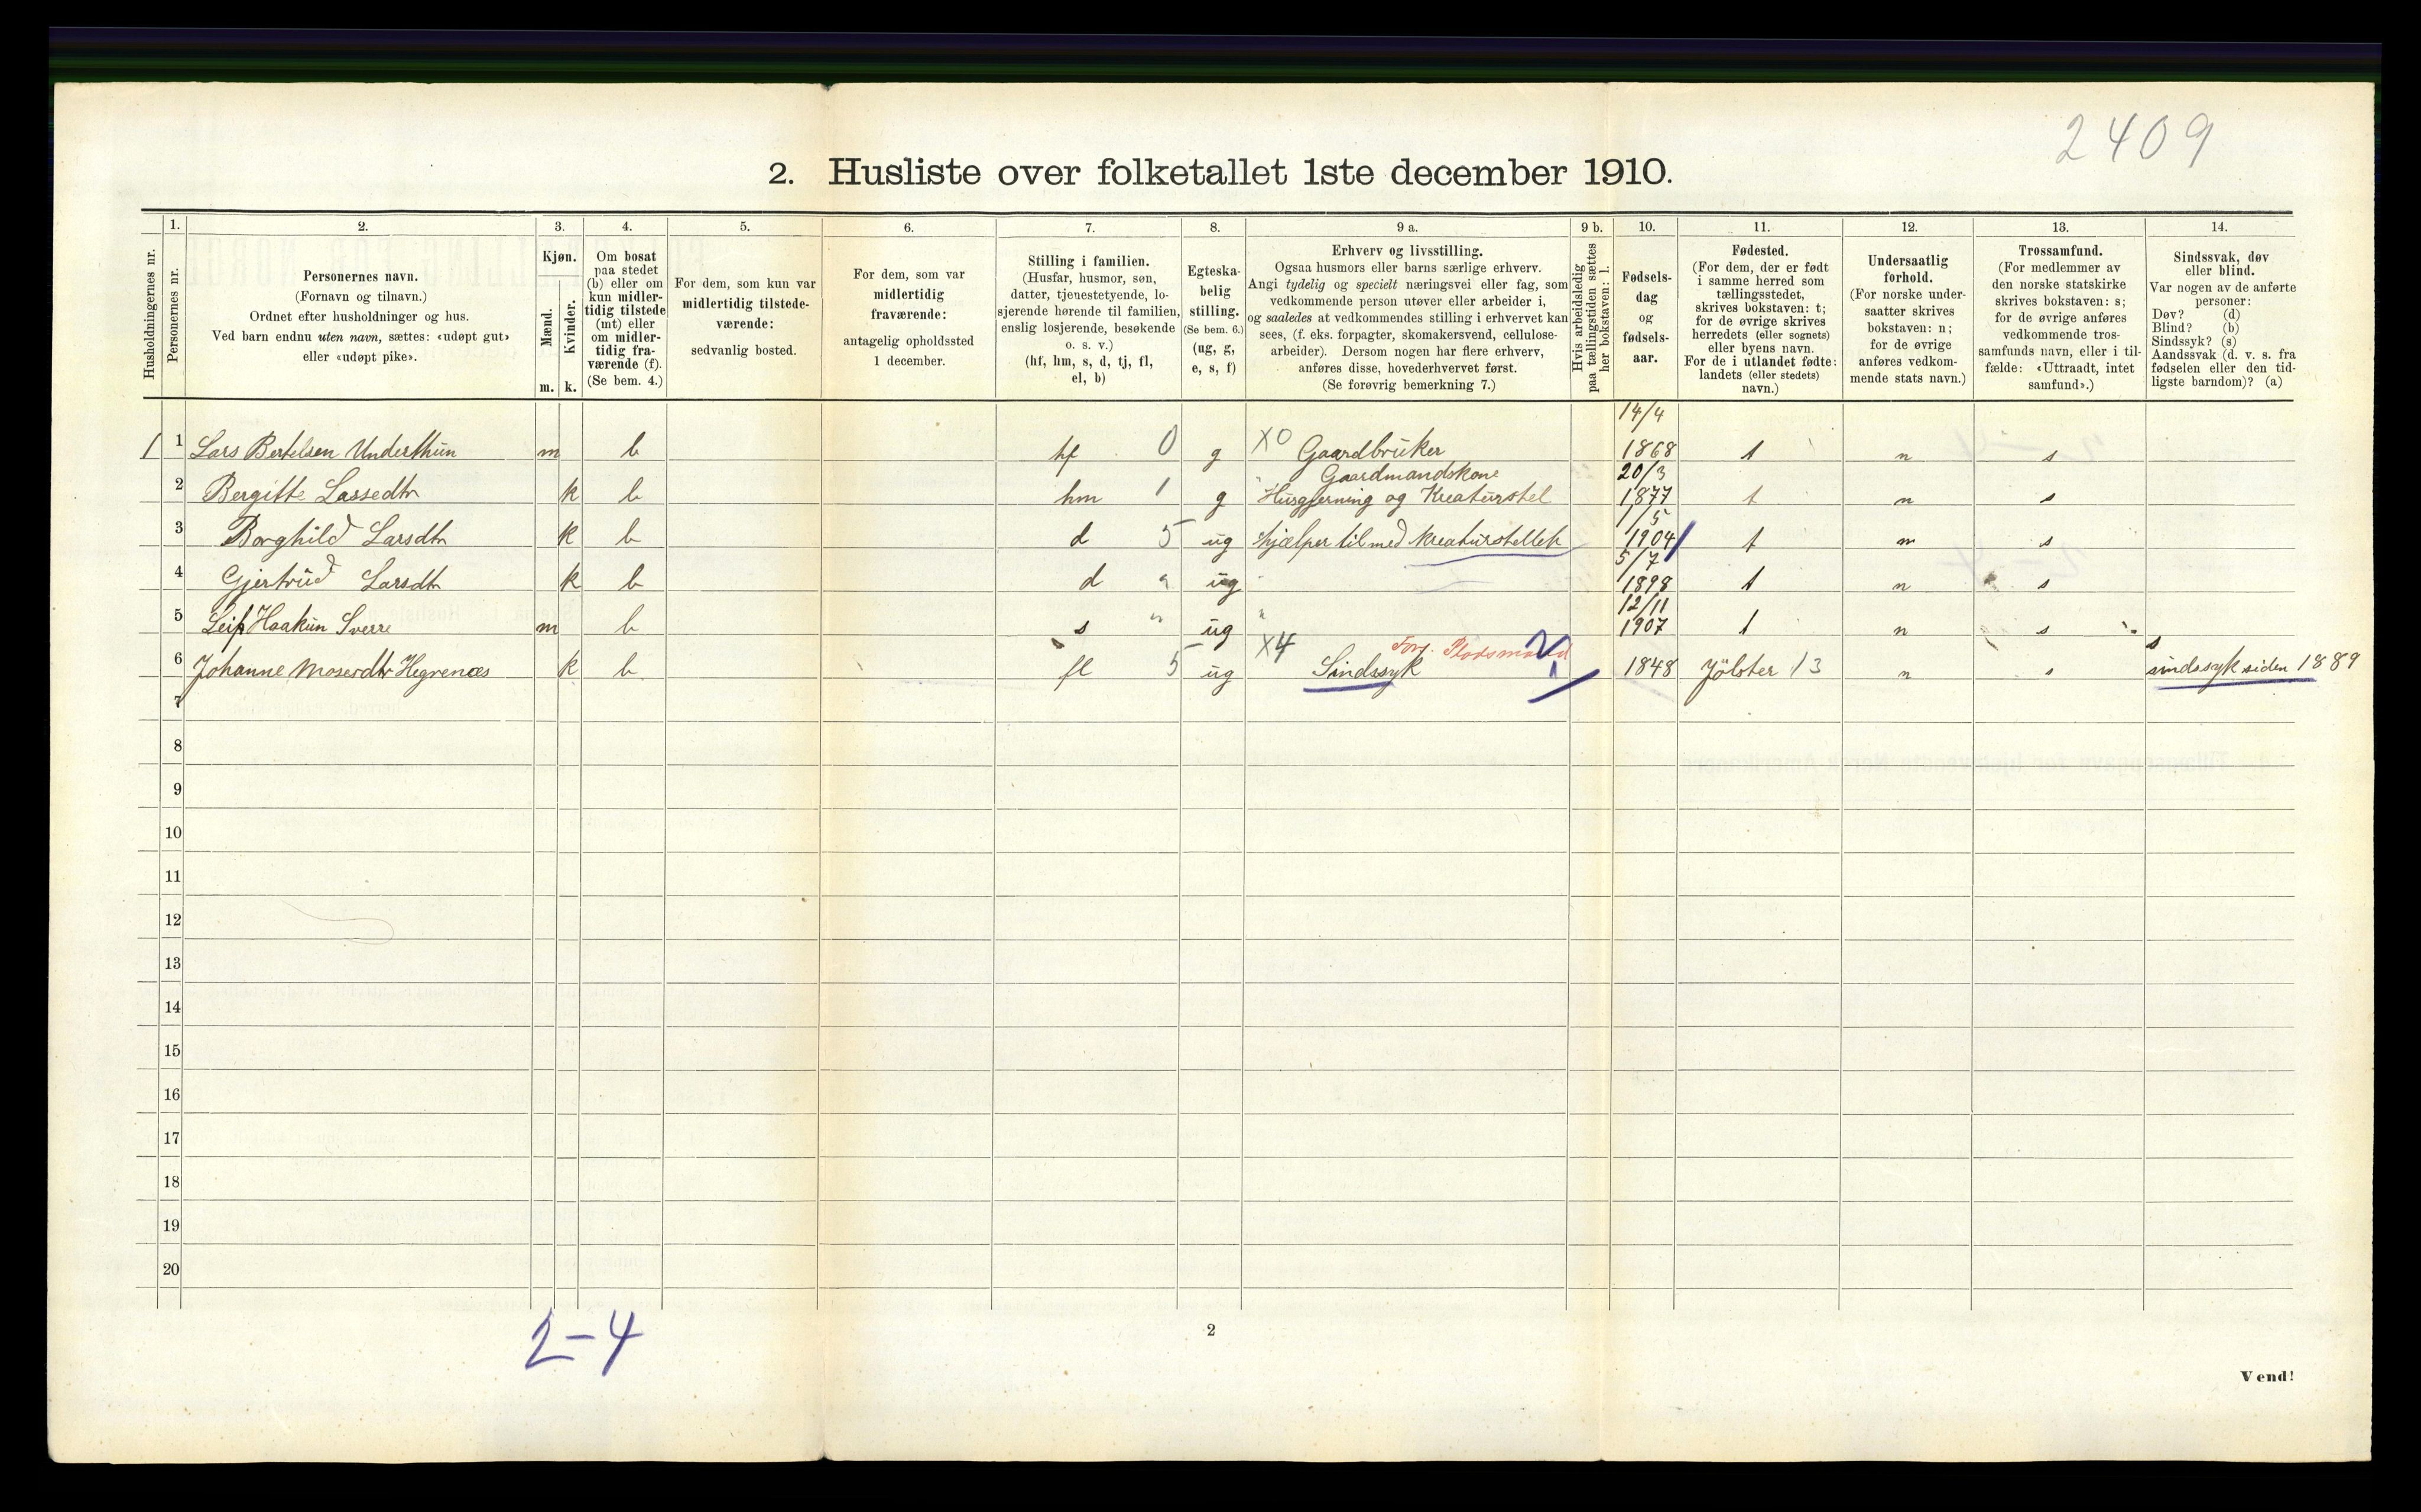 2409
2. Husliste over folketallet 1ste december 1910.
Husholdningernes nr.
1.
Personernes nr.
2.
Personernes navn.
(Fornavn og tilnavn.)
Ordnet efter husholdninger og hus.
Ved barn endnu uten navn, sættes: «udøpt gut»
eller «udøpt pike».
3.
Kjøn.
Mænd.
Kvinder.
m. k.
4.
Om bosat
paa stedet
(b) eller om
kun midler-
tidig tilstede
(mt) eller
om midler-
tidig fra-
værende (f).
(Se bem. 4.)
5.
For dem, som kun var
midlertidig tilstede-
værende:
sedvanlig bosted.
6.
For dem, som var
midlertidig
fraværende:
antagelig opholdssted
1 december.
7.
Stilling i familien.
(Husfar, husmor, søn,
datter, tjenestetyende, lo-
sjerende hørende til familien,
enslig losjerende, besøkende
o. s. v.)
(hf, hm, s, d, tj, fl,
el, b)
8.
Egteska-
belig
stilling.
(Se bem. 6.)
(ug, g,
e, s, f)
9 a.
Erhverv og livsstilling.
Ogsaa husmors eller barns særlige erhverv.
Angi tydelig og specielt næringsvei eller fag, som
vedkommende person utøver eller arbeider i,
og saaledes at vedkommendes stilling i erhvervet kan
sees, (f. eks. forpagter, skomakersvend, cellulose-
arbeider). Dersom nogen har flere erhverv,
anføres disse, hovederhvervet først.
(Se forøvrig bemerkning 7.)
9 b.
Hvis arbeidsledig
paa tællingstiden sættes
her bokstaven: l.
10.
Fødsels-
dag
og
fødsels-
aar.
11.
Fødested.
(For dem, der er født
i samme herred som
tællingsstedet,
skrives bokstaven: t;
for de øvrige skrives
herredets (eller sognets)
eller byens navn.
For de i utlandet fødte:
landets (eller stedets)
navn.)
12.
Undersaatlig
forhold.
(For norske under-
saatter skrives
bokstaven: n;
for de øvrige
anføres vedkom-
mende stats navn.)
13.
Trossamfund.
(For medlemmer av
den norske statskirke
skrives bokstaven: s;
for de øvrige anføres
vedkommende tros-
samfunds navn, eller i til-
fælde: «Uttraadt, intet
samfund».)
14.
Sindssvak, døv
eller blind.
Var nogen av de anførte
personer:
Døv? (d)
Blind? (b)
Sindssyk? (s)
Aandssvak (d. v. s. fra
fødselen eller den tid-
ligste barndom)? (a)
14/4
1 1 Lars Bertelsen Underthun m b hf 0 g X0 Gaardbruker 1868 t n s
Gaardmandskone 20/3
2 Bergitte Lassedtr k b hm 1 g Husgjerning og Kreaturstel 1877 t n s
1/5
3 Borghild Larsdtr k b d 5 ug hjælper til med kreaturstellet 1904 t n s
5/7
4 Gjertrud Larsdtr k b d " ug 1898 t n s
12/11
5 Leif Haakun Sverre m b s " ug " 1907 t n s
X4 s
6 Johanne Mosesdtr Hegrenæs k b fl 5 ug Sindssyk 1848 Jölster 13 n s sindssyk siden 1889
7
8
9
10
11
12
13
14
15
16
17
18
19
20
2-4
2
Vend!